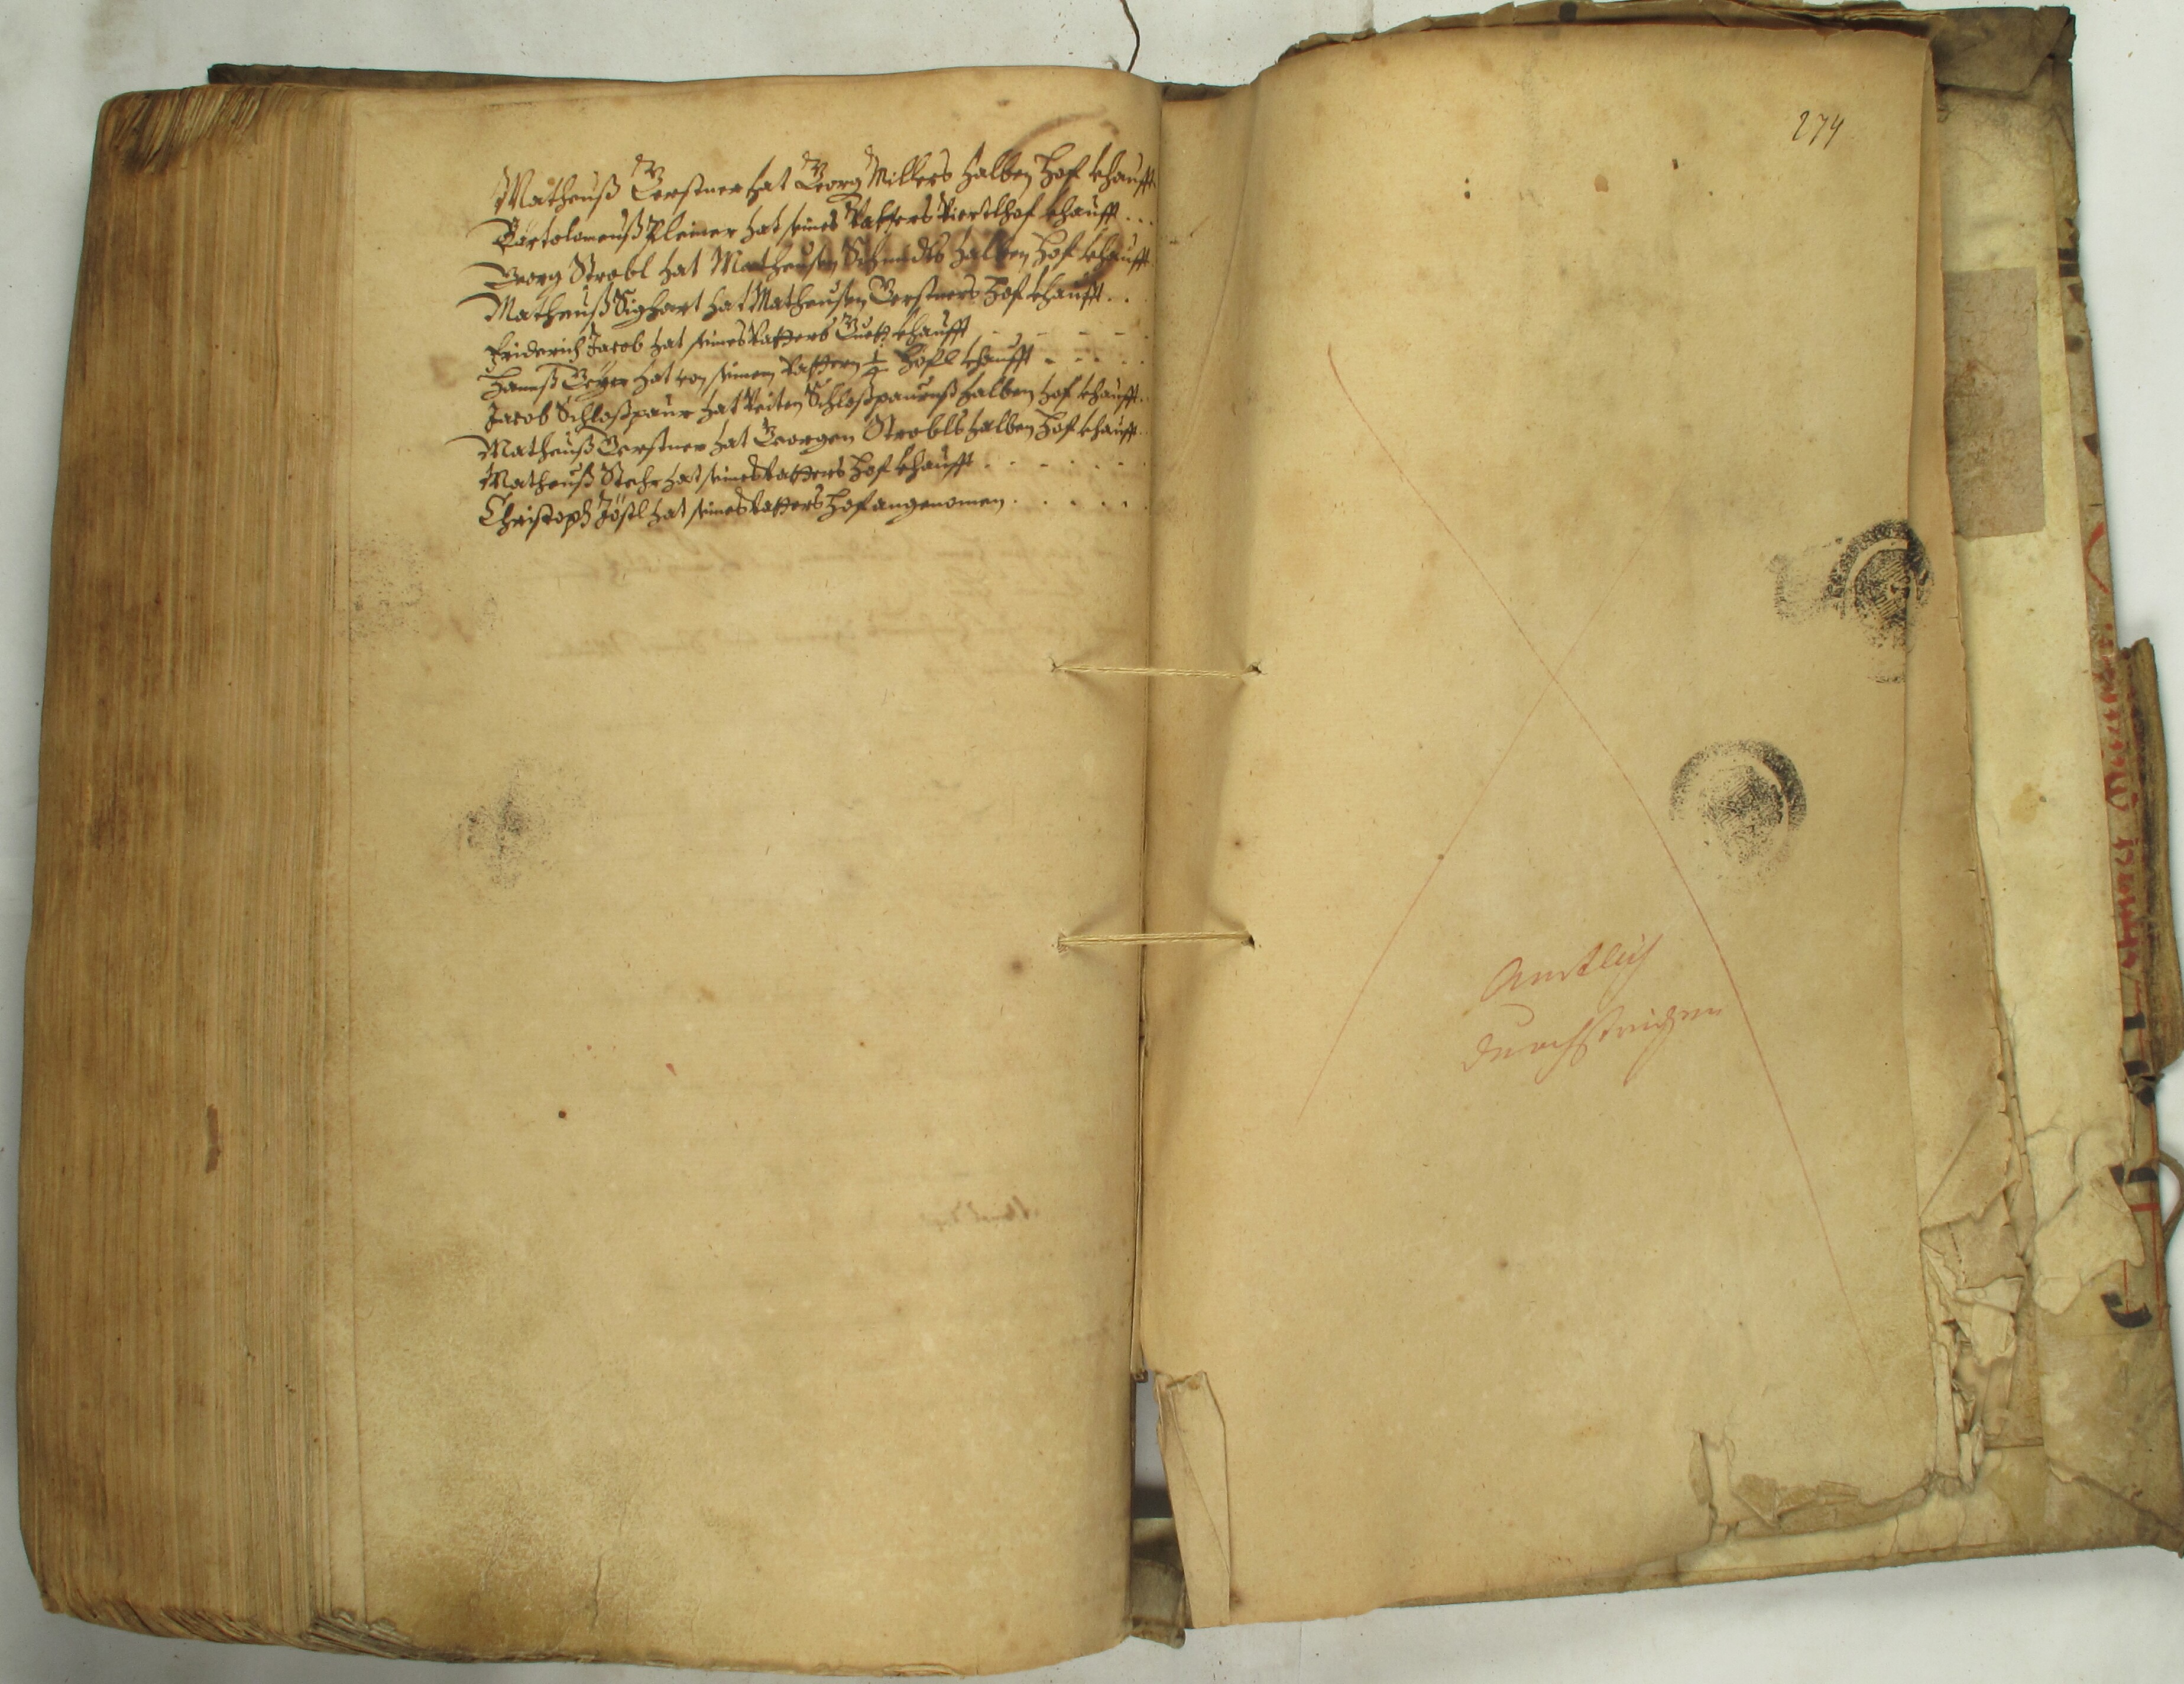 Matheuß Gerstner hat Georg Millers halben Hof khaufft
Bartolomeuß Kleiner hat seines Vatters Viertlhof khaufft . . .
Georg Strobl hat Matheusen Schmidts halben Hof khaufft
Matheuß Sighart hat Matheusen Gerstners Hof khaufft . .
Friderich Jacob hat seines Vatters Guett khaufft - - - - -
Hannß Geyer hat von seinem Vattern 1/4 Höfl khaufft - - - - -
Jacob Schloßpaur hat Veiten Schloßpaurnß halben hof khaufft .
Matheuß Gerstner hat Georgen Strobls halben Hof khaufft
Matheuß Stehr hat seines Vatters Hof khaufft . . . . . .
Christoph Jöstl hat seines Vatters Hof angenomen . . . . .
274
Amtlich
durchstrichen